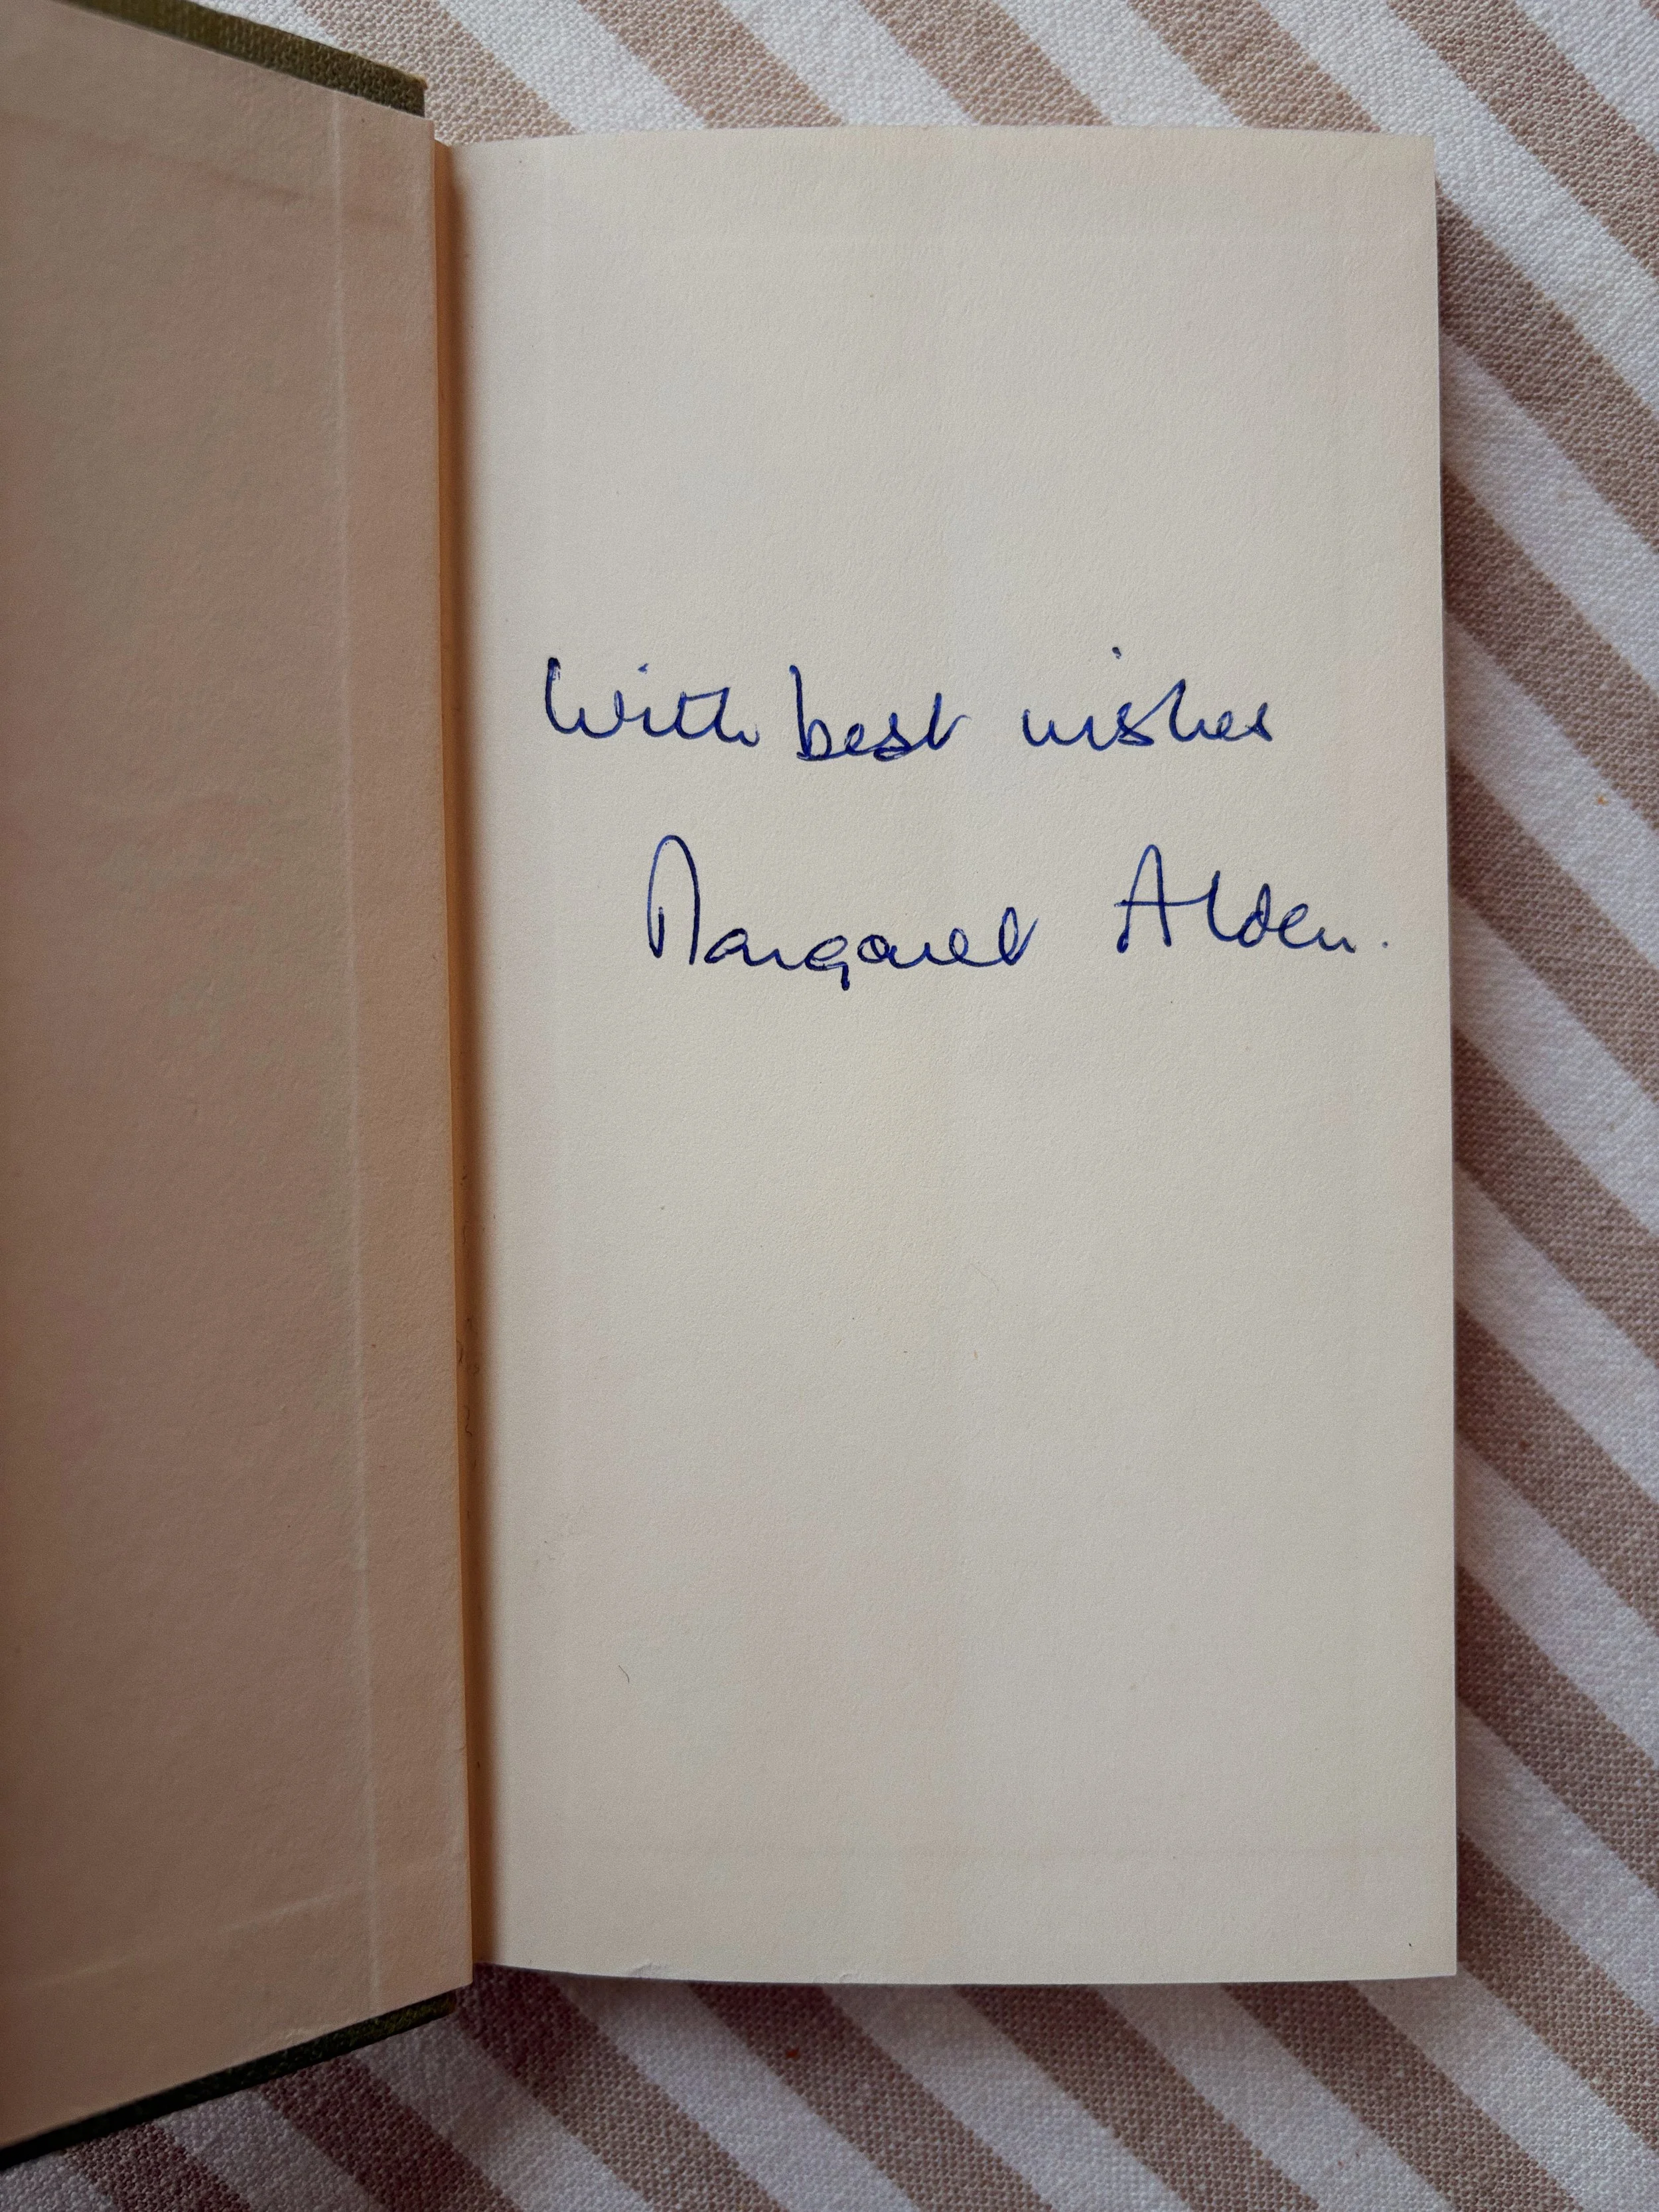 With best wishes
Margaret Alden.